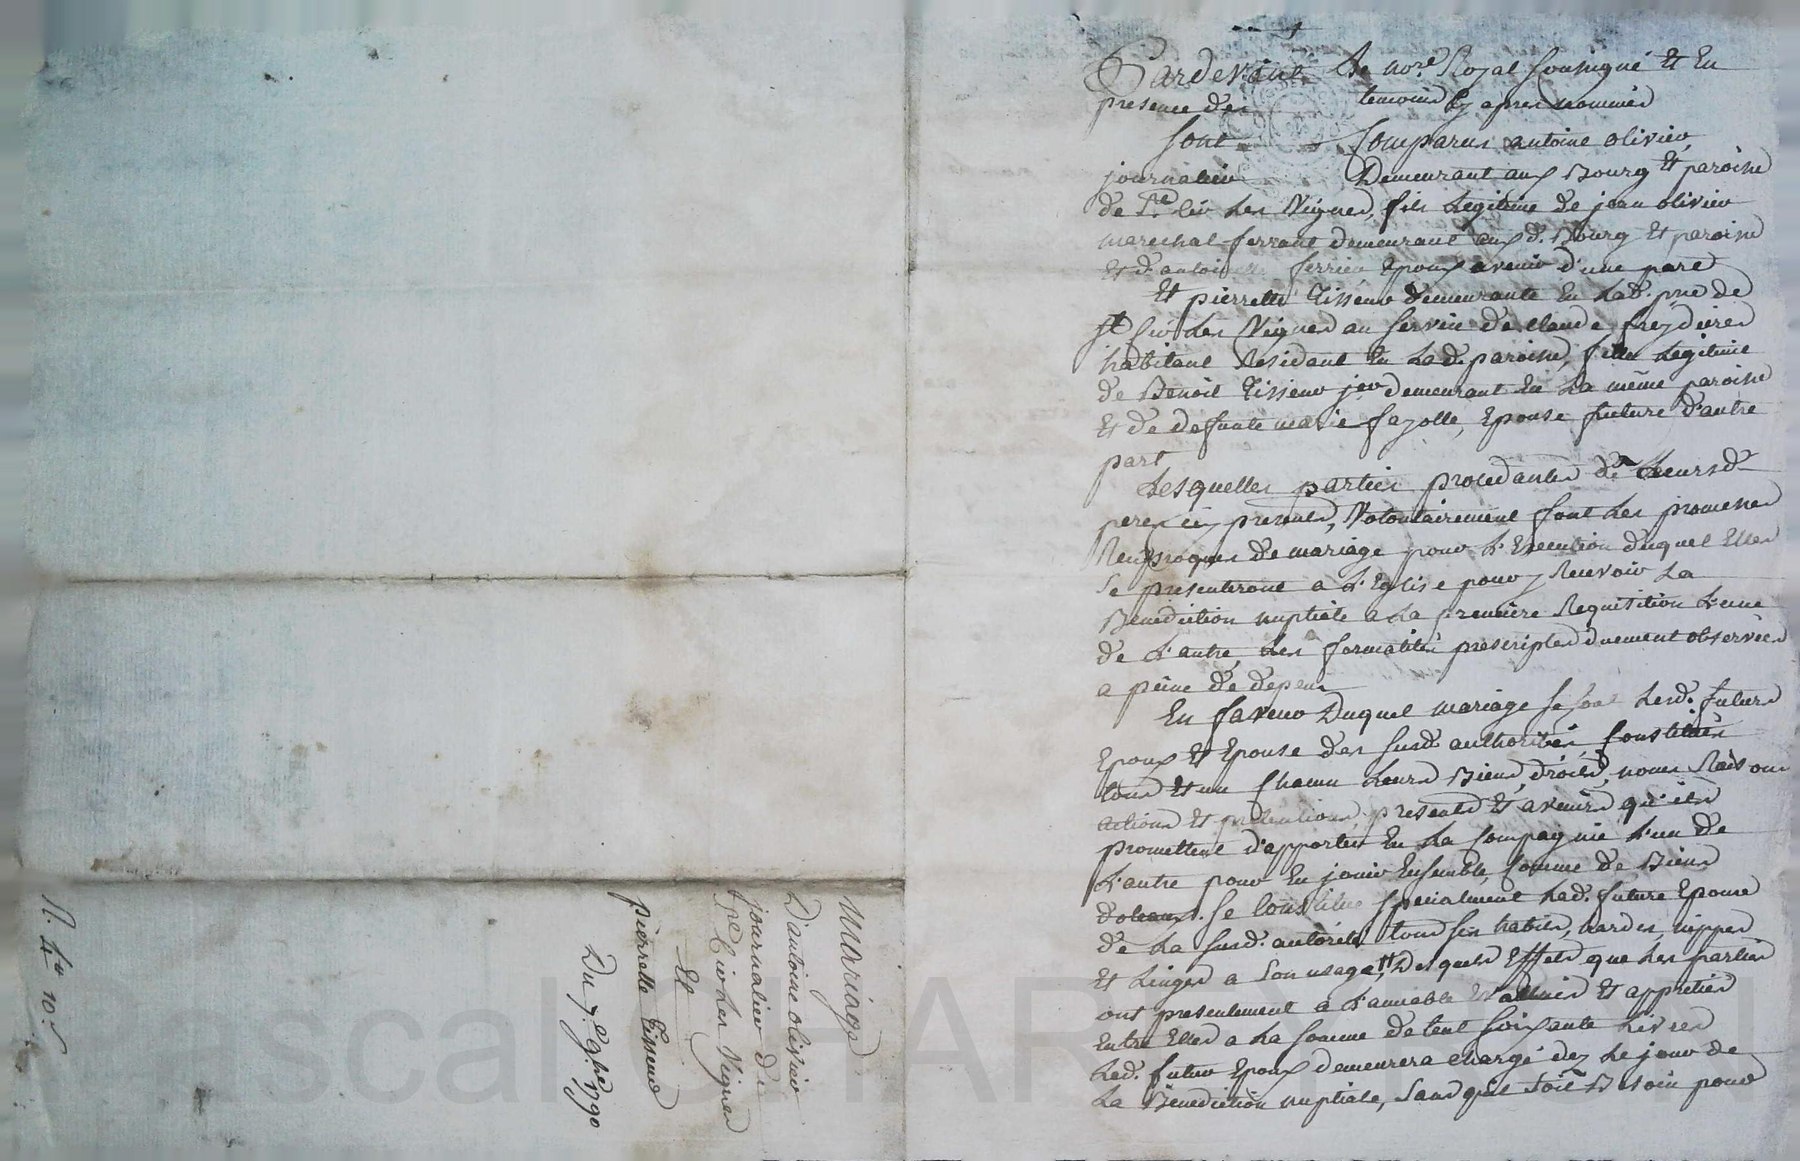 Pardevant Le nore Royal soussigné Et En
presence des temoins Cy apres nommés
sont Comparus antoine olivier
journalier Demeurant aux Bourg Et paroisse
de Ste Cir les Vignes, fils Legitime de jean olivier
marechal ferrant demeurant aux d. Bourg Et paroisse
Et d'antoinette ferrier Epoux avenir d'une part
Et pierrette Tisseur demeurante En lad. psse de
st Cir les Vignes au service de claude freydieres
habitant Residant En lad. paroisse, fille Legitime
de Benoit Tisseur jer demeurant En la même paroisse
Et de defunte marie fayolle, Epouse future d'autre
part
Lesquelles parties procedantes de Leursd.
peres icy presents, Volontairement font les promesses
Reciproques de mariage pour L'Execution duquel Elles
se presenteront a L'Eglise pour y Recevoir La
Benediction nuptiale a La premiere Requisition L'une
de L'autre, les formalités prescriptes duement observées
a peine de depens
En faveur Duquel mariage se sont Lesd. futurs
Epoux Et Epouse des susd. authorités, Constitués
tous Et un Chacun Leurs Biens, droits, noms Raisons
actions Et pretentions presents Et avenirs qu'ils
promettent d'apporter En La Compagnie L'un de
L'autre pour En jouir Ensemble, Comme de Biens
dotaux. Se Constitue specialement Lad. future Epouse
de La susd. autorité tous ses habits, hardes, nippes
Et Linges a Son usage, Desquels Effets que les parties
ont presentement a L'amiable Evalués Et appretiés
Entre Elles a La somme de Cent soixante Livres
Led. futur Epoux demeurera chargé dez Le jour de
La Benediction nuptiale, Sans qu'il soit Besoin pour
Mariage
D'antoine olivier
journalier de
St Cir les Vignes
Et
pierrette Tisseur
Du 7 9bre 1790
R. 4# 10s
scal CHAR